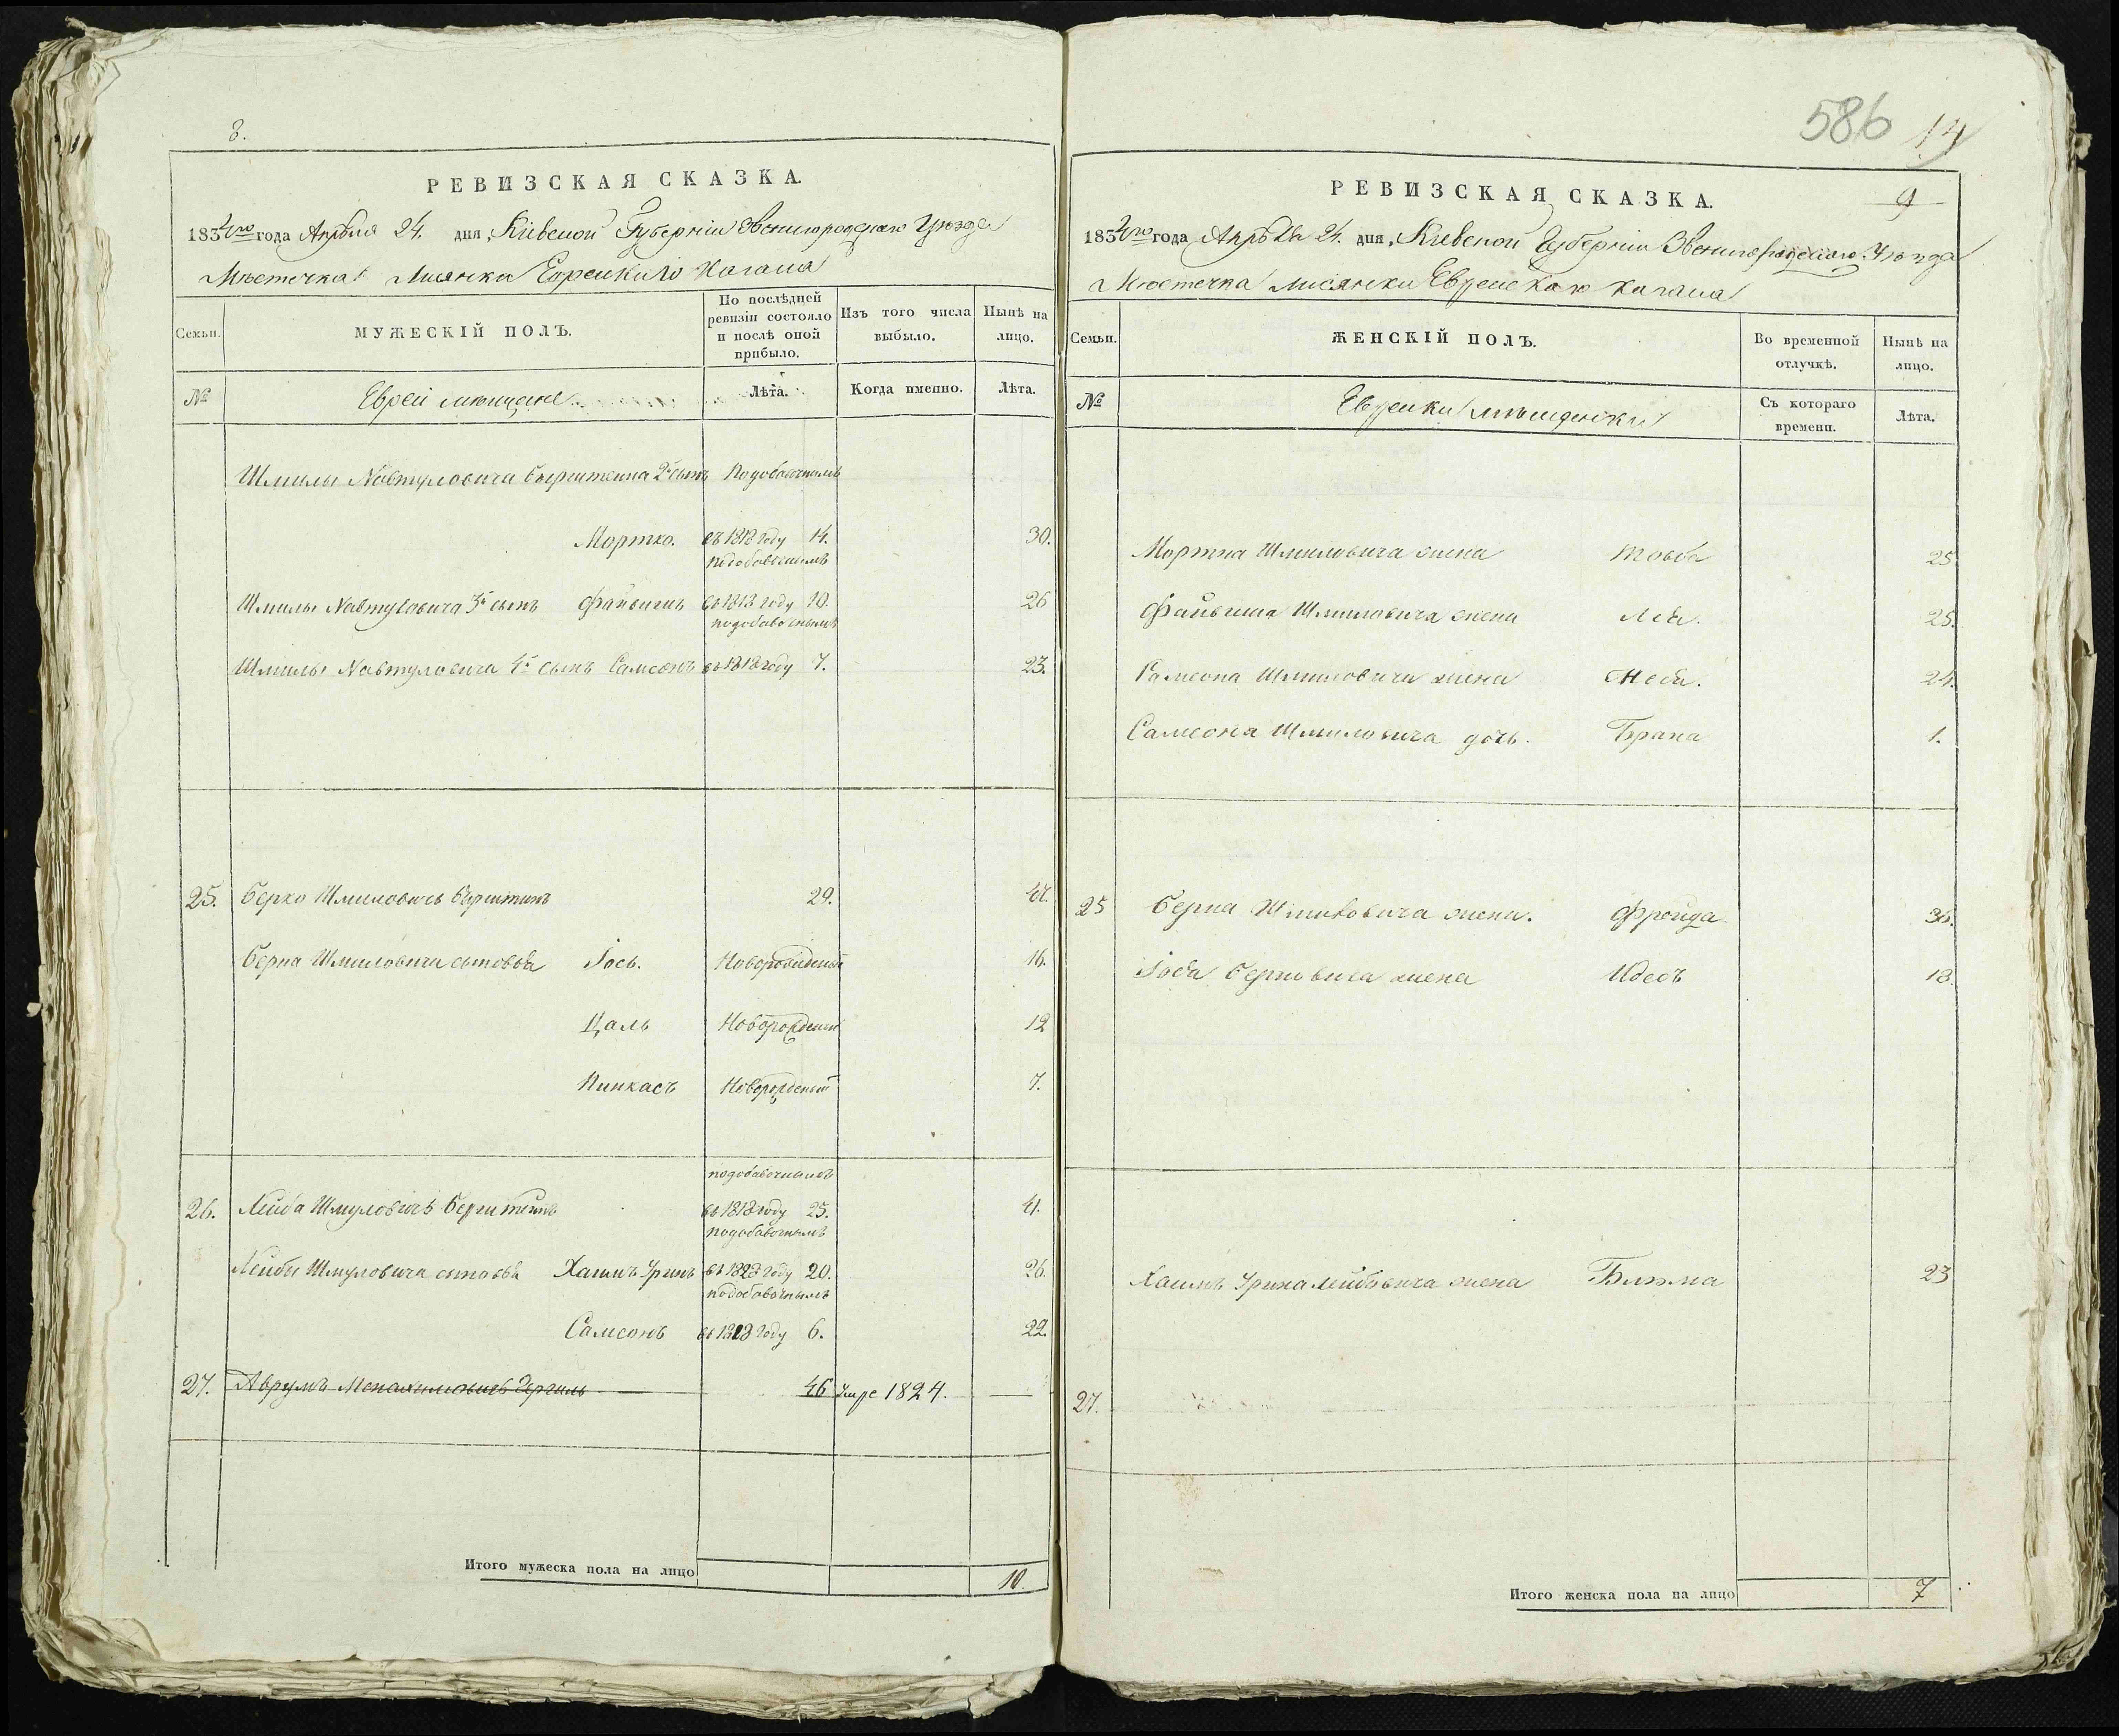 8.
РЕВИЗСКАЯ СКАЗКА.
1834го года Апрѣля 24. дня, Кіевской Губерніи Звенигородскаго Уѣзда
Мѣстечка Лисянки Еврейскаго Кагала
Семьи.
МУЖЕСКІЙ ПОЛЪ.
По послѣдней ревизіи состояло и послѣ оной прибыло.
Изъ того числа выбыло.
Нынѣ на лицо.
№
Евреи мещане
Лѣта.
Когда именно.
Лѣта.
Шмилы Навтуловича 2й сынъ Подобавочнымъ
Мортко. въ 1818 году 14. 30.
подобавочнымъ
Шмилы Навтуловича 3й сынъ Файвишъ въ 1818 году 10. 26
подобавочнымъ
Шмилы Навтуловича 4й сынъ Самсонъ въ 1818 году 7. 23.
25. Берко Шмиловичь 29.
Берка Шмиловича сыновья Іось. Новорожденный 16.
Цаль Новорожденный 12
Пинкасъ Новорожденный 7.
подобавочнымъ
26. Лейба Шмуловичъ Берштейнъ въ 1818 году 25. 41.
подобавочнымъ
Лейбы Шмуловича сыновья Хаимъ Сринъ въ 1828 году 20. 26.
подобавочнымъ
Самсонъ 6. 22.
27. Аврумъ 46 Умре 1824.
Итого мужеска пола на лицо 10.
586 14
9
РЕВИЗСКАЯ СКАЗКА.
1834го года Апрѣля 24. дня, Кіевской Губерніи Звенигородскаго Уѣзда
Мѣстечка Лисянки Еврейскаго Кагала
Семьи.
ЖЕНСКІЙ ПОЛЪ.
Во временной отлучкѣ.
Нынѣ на лицо.
№
Еврейки мѣщанки
Съ котораго времени.
Лѣта.
Мортка Шмиловича жена Товба 25
Файвиша Шмиловича жена Леа. 25.
Самсона Шмиловича жена 24.
Самсона Шмиловича дочь. Брана 1.
25 Берка Шмиловича жена. Фройда 36.
Іося Берковича жена Идесъ 18.
Хаимъ Срина Лейбовича жена Блюма 23
27.
Итого женска пола на лицо 7